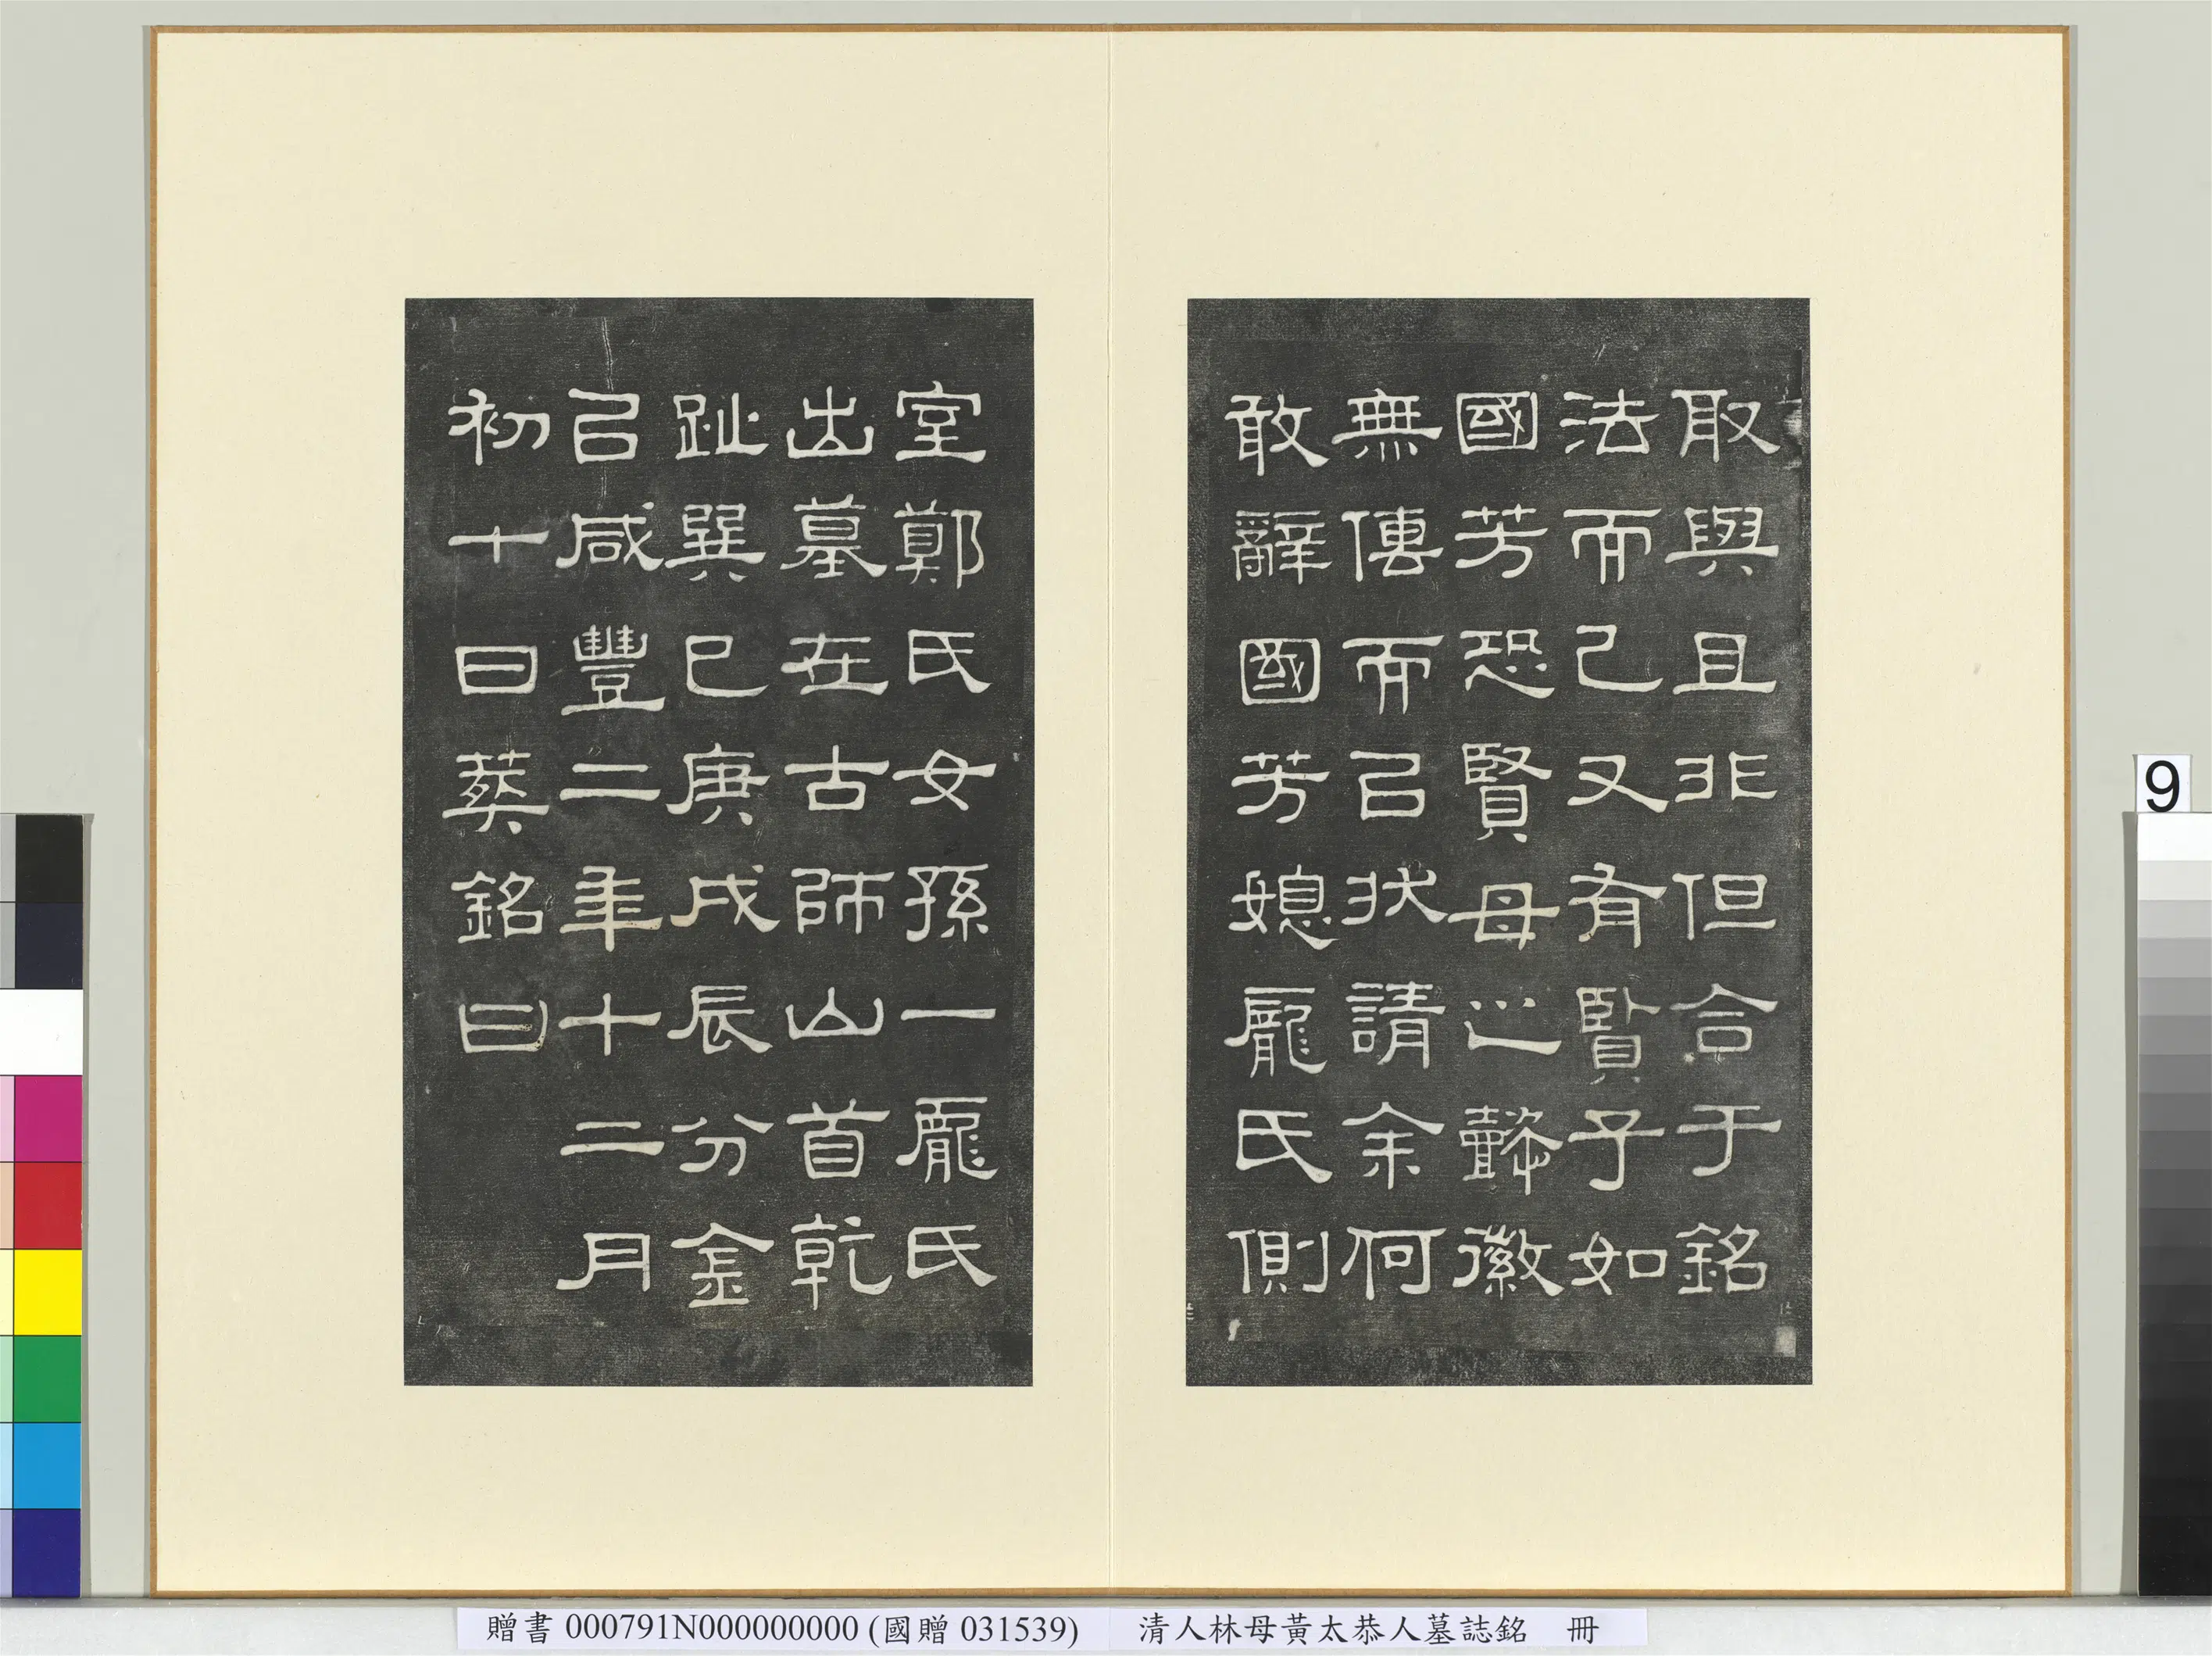 取與且非但合于銘
法而已又有賢子如
國芳恐賢母之懿徽
無傳而㠯狀請余何
敢辭國芳媳龐氏側
室鄭氏女孫一龐氏
出墓在古師山首乾
趾巽巳庚戌辰分金
㠯咸豐二年十二月
初十日葬銘曰
9
贈書 000791N000000000 (國贈 031539) 清人林母黃太恭人墓誌銘 冊